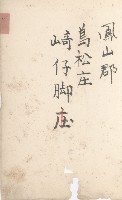 鳳山郡
鳥松庄
崎仔脚庄